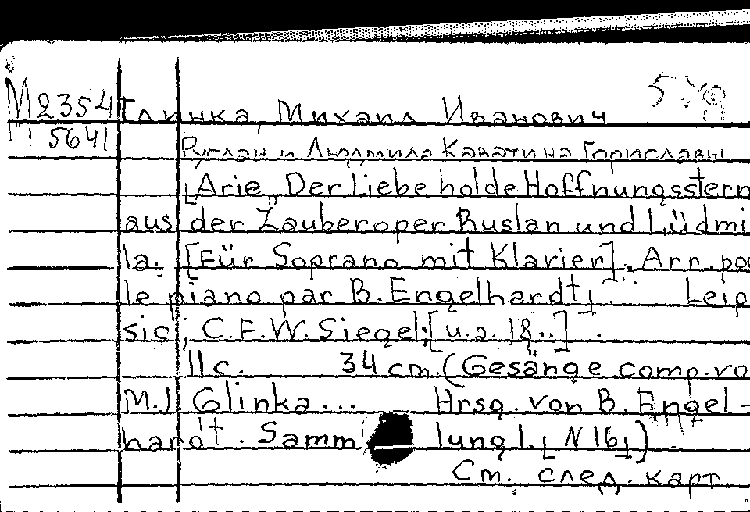 М2354 Глинка, Михаил Иванович
Г 5641
Руслан и Людмила Каватина Гориславы
[Arie „Der Liebe holde Hoffnungsstern
aus der Zauberoper Ruslan und Lüdmi
la. [Für Soprano mit Klavier]. Arr. po
le piano par B. Engelhardt] Leip
sic, C.F.W. Siegel; [u. a. 18..]
11 c. 34 cm (Gesänge comp. vo
M. I Glinka... Hrsg. von B. Engel-
hardt. Samm lung I. [N 16])
См. след. карт